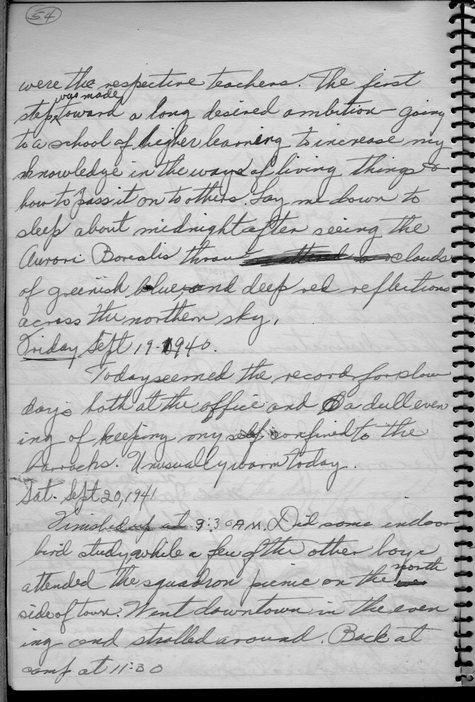 54
were the respective teachers. The first
step was made toward a long desired ambition - going
to a school of higher learning to increase my
knowledge in the ways of living things &
how to pass it on to others. Lay me down to
sleep about midnight after seeing the
Aurora Borealis throu clouds
of greenish blue and deep red reflections
across the northern sky.
Friday Sept 19 - 1940.
Today seemed the record for slow
days both at the office and a dull even
ing of keeping my self confined to the
barracks. Unusually warm today.
Sat. Sept 20, 1941
Finished up at 9:30 A.M. Did some indoor
bird study while a few of the other boys
attended the squadron picnic on the north
side of town. Went downtown in the even
ing and strolled around. Back at
camp at 11:30